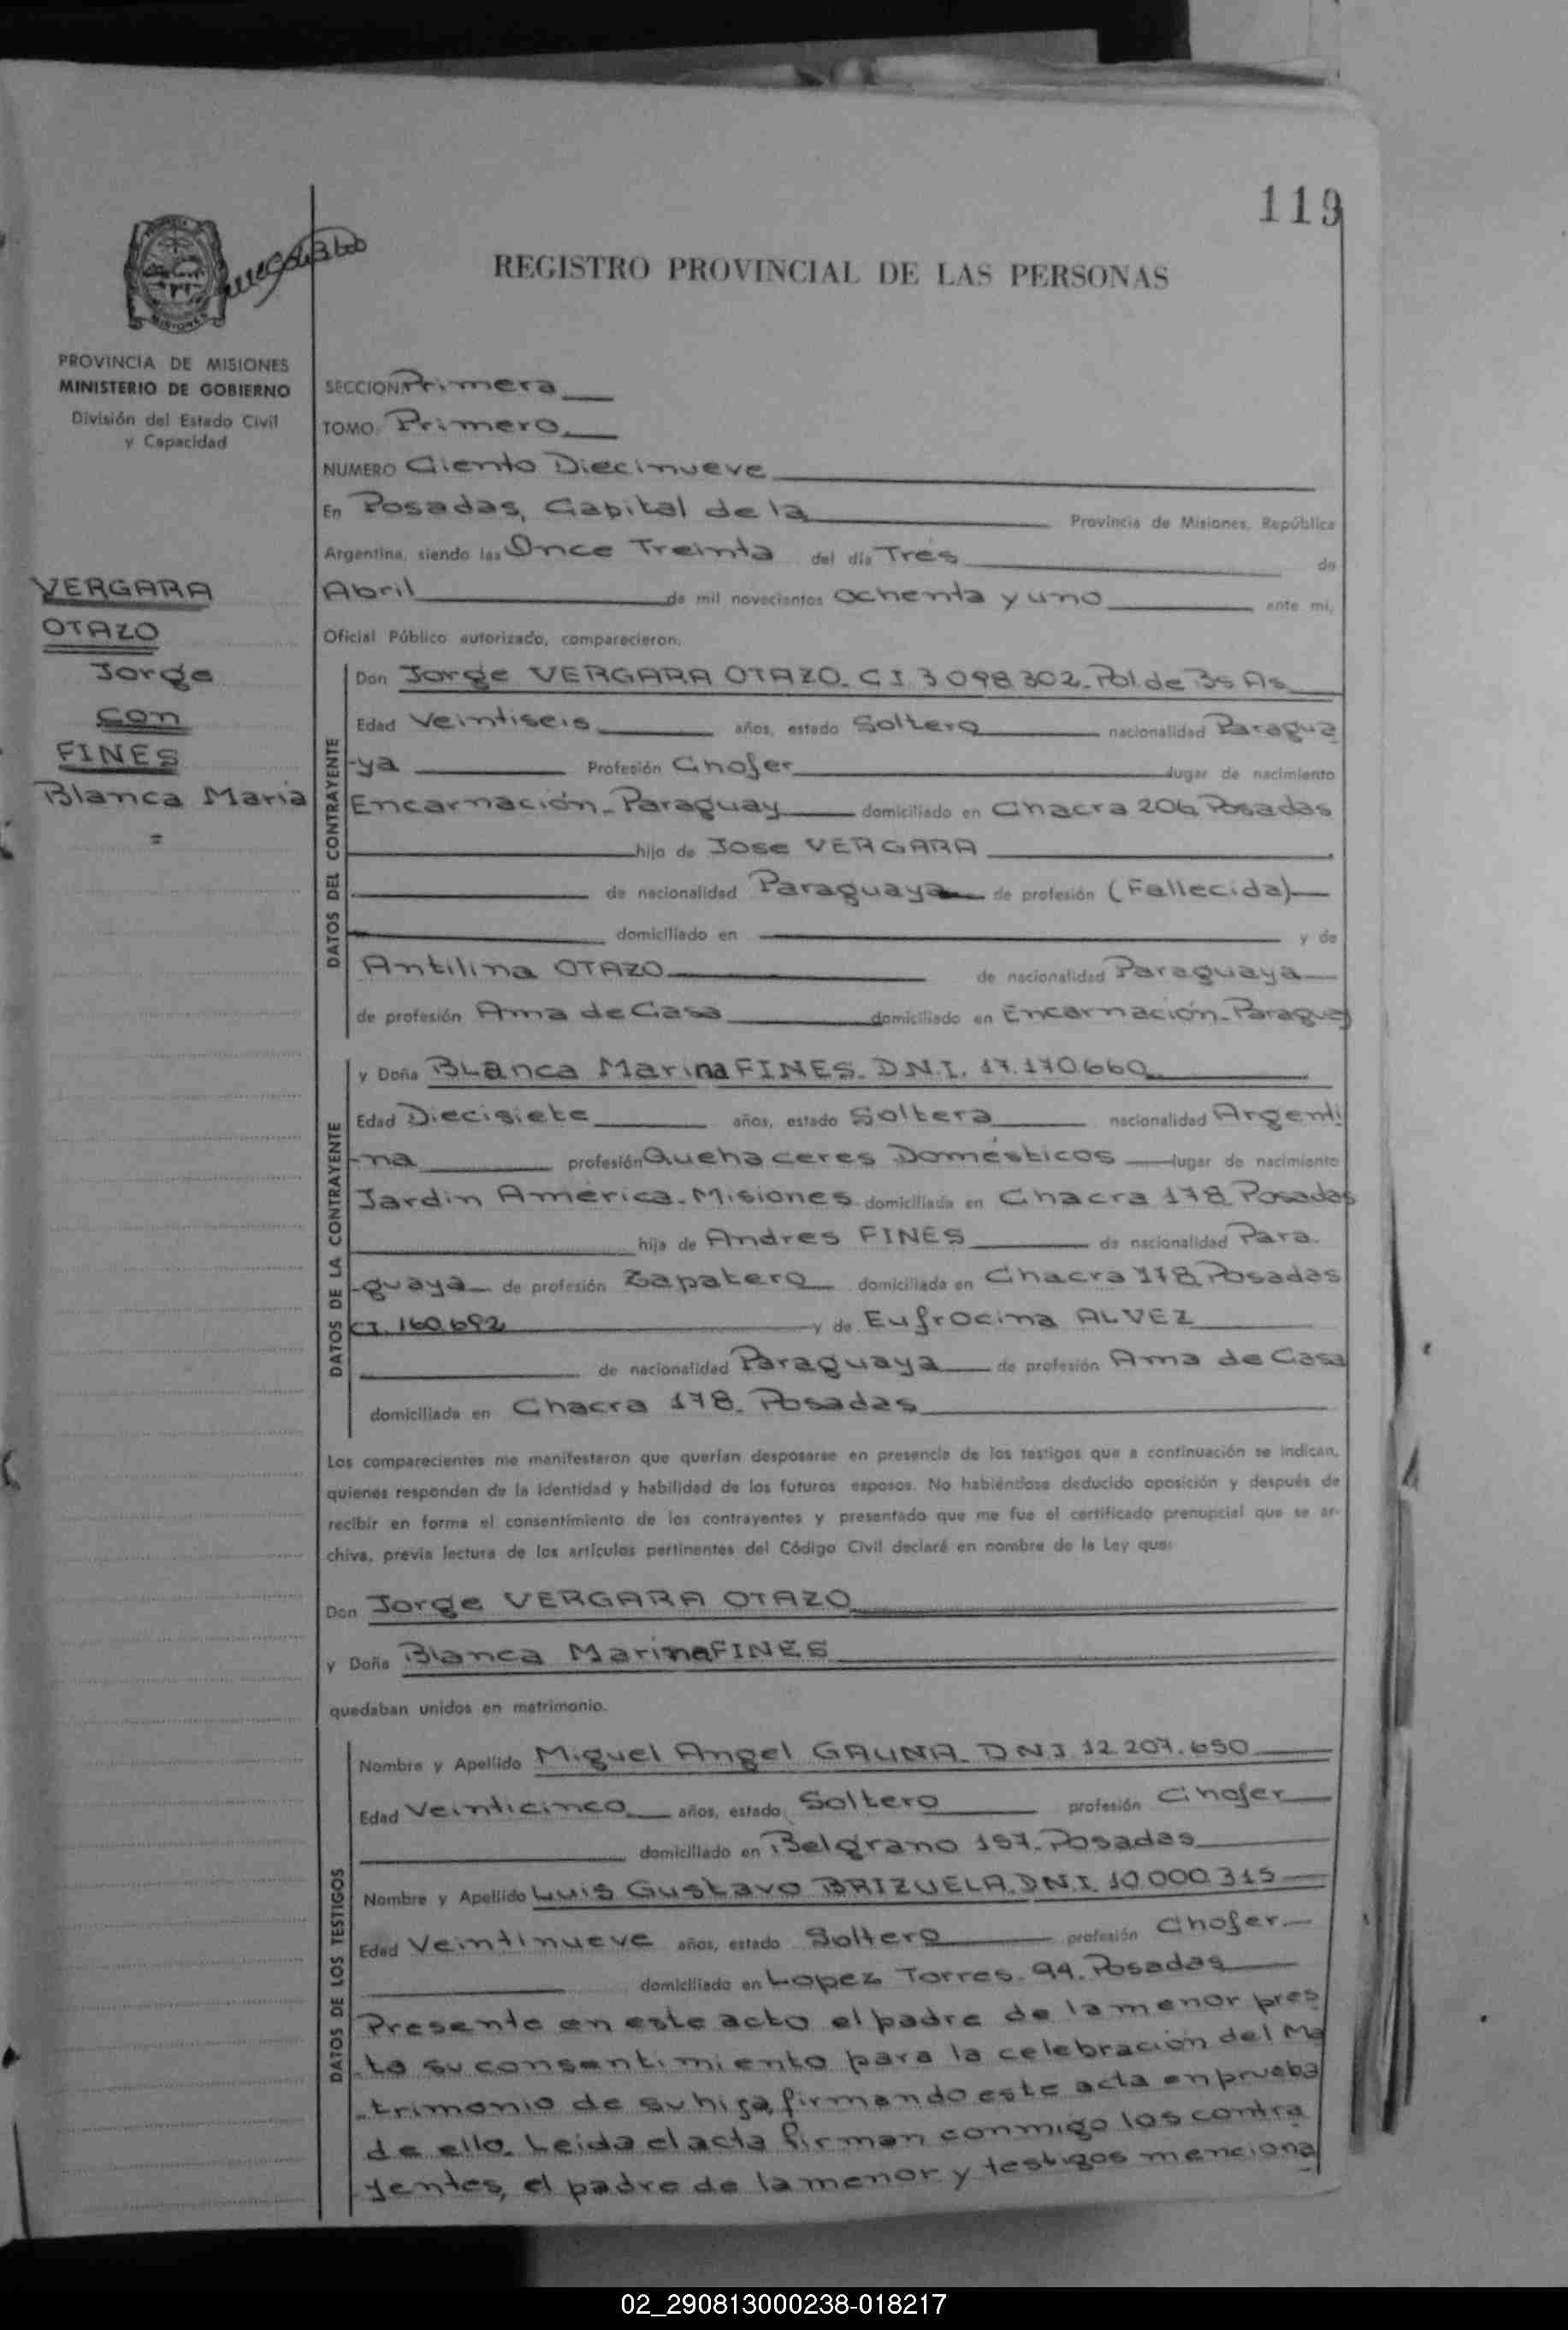 119
REGISTRO PROVINCIAL DE LAS PERSONAS
MISIONES
PROVINCIA DE MISIONES
MINISTERIO DE GOBIERNO
División del Estado Civil
y Capacidad
VERGARA
OTAZO
Jorge
con
FINES
Blanca Maria
=
SECCION: Primera
TOMO: Primero
NUMERO Ciento Diecinueve
En Posadas, Capital de la Provincia de Misiones, República
Argentina, siendo las Once Treinta del día Tres de
Abril de mil novecientos ochenta y uno ante mi,
Oficial Público autorizado, comparecieron.
DATOS DEL CONTRAYENTE
Don Jorge VERGARA OTAZO. C I 3 098 302. Pol. de Bs As
Edad Veintiseis años, estado Soltero nacionalidad Paragua
-ya Profesión Chofer lugar de nacimiento
Encarnación - Paraguay domiciliado en Chacra 206 Posadas
hijo de Jose VERGARA
de nacionalidad Paraguaya de profesión (Fallecida)
domiciliado en y de
Antilina OTAZO de nacionalidad Paraguaya
de profesión Ama de Casa domiciliado en Encarnación - Paraguay
DATOS DE LA CONTRAYENTE
y Doña Blanca Marina FINES. D.N.I. 17.170.660
Edad Diecisiete años, estado Soltera nacionalidad Argenti
-na profesión Quehaceres Domésticos lugar de nacimiento
Jardin América - Misiones domiciliada en Chacra 178 Posadas
hija de Andres FINES de nacionalidad Para-
guaya de profesión Zapatero domiciliada en Chacra 178 Posadas
CI. 160.692 y de Eufrocina ALVEZ
de nacionalidad Paraguaya de profesión Ama de Casa
domiciliada en Chacra 178. Posadas
Los comparecientes me manifestaron que querían desposarse en presencia de los testigos que a continuación se indican,
quienes responden de la identidad y habilidad de los futuros esposos. No habiéndose deducido oposición y después de
recibir en forma el consentimiento de los contrayentes y presentado que me fue el certificado prenupcial que se ar-
chiva, previa lectura de los artículos pertinentes del Código Civil declaré en nombre de la Ley que:
Don Jorge VERGARA OTAZO
y Doña Blanca Marina FINES
quedaban unidos en matrimonio.
DATOS DE LOS TESTIGOS
Nombre y Apellido Miguel Angel GAUNA. D N I 12.207.650
Edad Veinticinco años, estado Soltero profesión Chofer
domiciliado en Belgrano 157. Posadas
Nombre y Apellido Luis Gustavo BRIZUELA. D.N.I. 10 000 315
Edad Veintinueve años, estado Soltero profesión Chofer
domiciliado en Lopez Torres. 94. Posadas
Presente en este acto el padre de la menor pres
-ta su consentimiento para la celebración del Ma
-trimonio de su hija, firmando este acta en prueba
de ello. Leida el acta firman conmigo los contra
yentes, el padre de la menor y testigos menciona
02_290813000238-018217